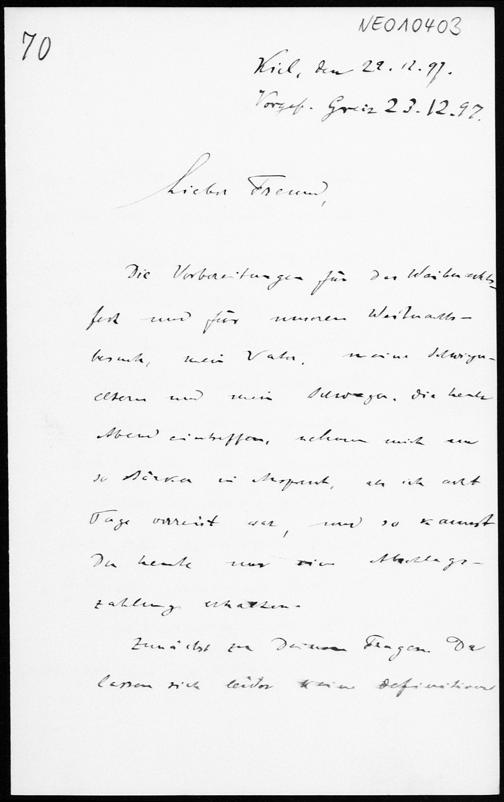 NEO10403
70
Kiel, den 22.12.97.
Vorgest. Greiz 23.12.97.
Lieber Freund,
Die Vorbereitungen für das Weihnachts-
fest und für unseren Weihnachts-
besuch, mein Vater, meine Schwieger-
eltern und mein Schwager, die heute
Abend eintreffen, nehmen mich um
so stärker in Anspruch, als ich acht
Tage verreist war, und so kannst
Du heute nur eine Abschlags-
zahlung erhalten.
Zunächst zu Deinen Fragen. Da
lassen sich leider keine Definitionen